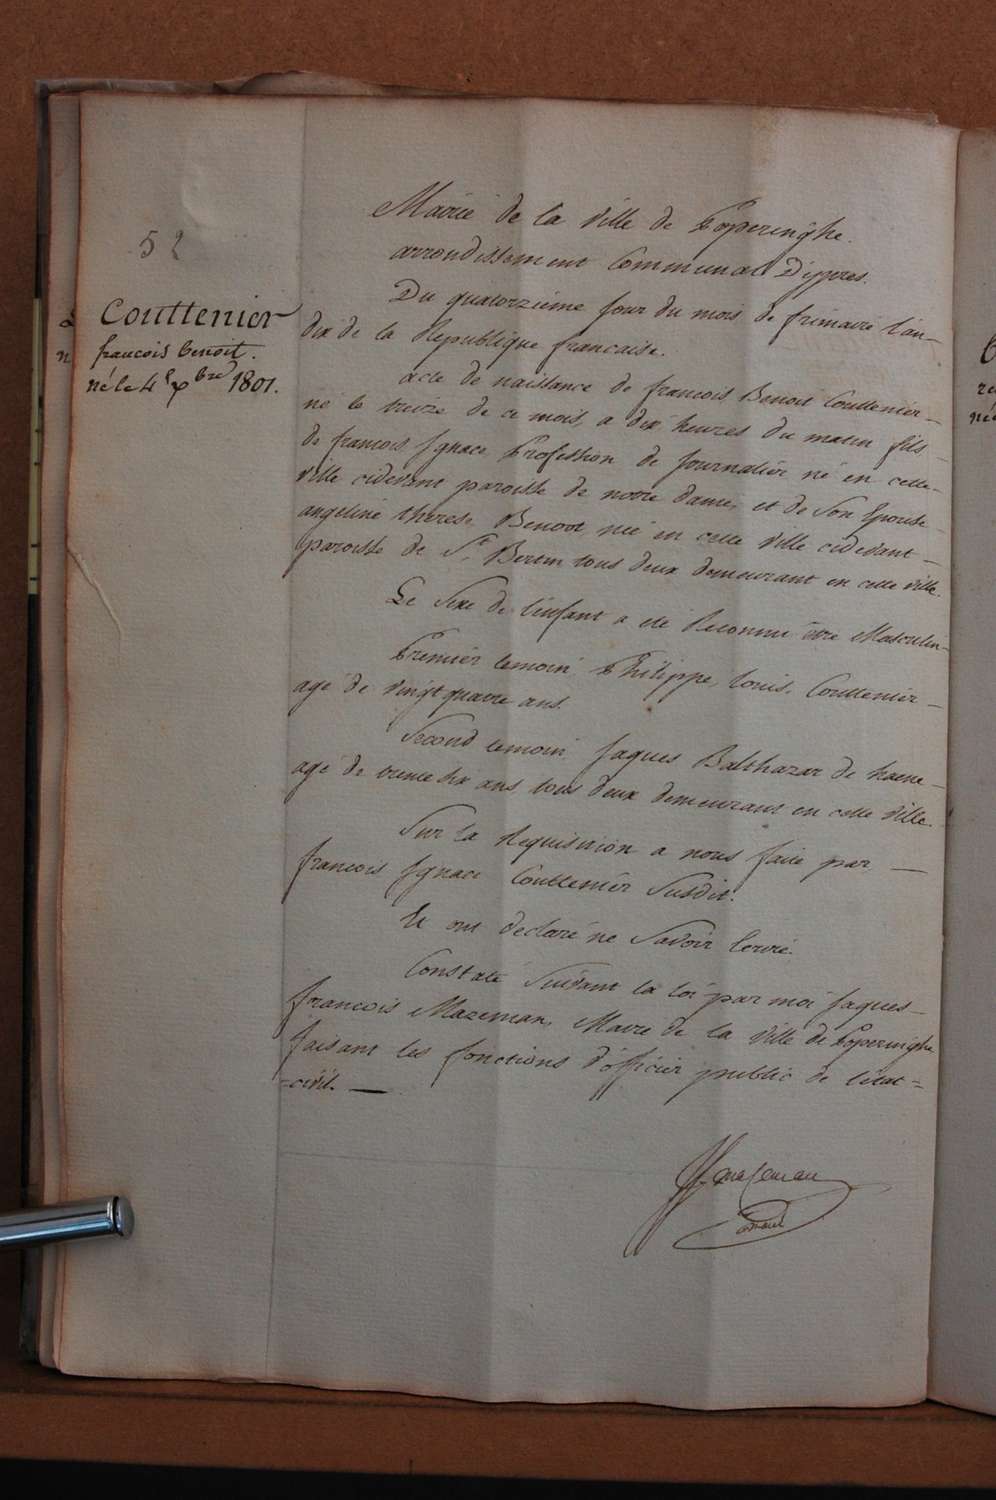 52
Couttenier
francois benoit.
né le 4e xbre 1801.
Mairie de la Ville de Poperinghe.
arrondissement Communal D'ippres.
Du quatorzieme jour du mois de frimaire l'an
dix de la Republique francaise.
acte de naissance de francois Benoit Couttenier
né le treize de ce mois, a dix heures du matin fils
de francois Ignace Profession de journalier né en cette
ville cidevant paroisse de notre dame, et de Son Epouse
angeline therese Benoot, née en cette ville cidevant
paroisse de St. Bertin tous deux demeurant en cette ville.
Le Sexe de l'enfant a eté Reconnu être Masculin
Premier temoin Philippe Louis Couttenier
agé de vingt quatre ans.
Second temoin Jaques Balthazar de haene
agé de trente six ans tous deux demeurant en cette ville.
Sur la Requisition a nous faite par
francois Ignace Couttenier Susdit.
Et ont declaré ne Savoir Ecrire.
Constaté Suivant la loi par moi Jaques
francois Mazeman, Maire de la Ville de Poperinghe
faisant les fonctions d'officier public de l'etat =
= civil.
JF Mazeman